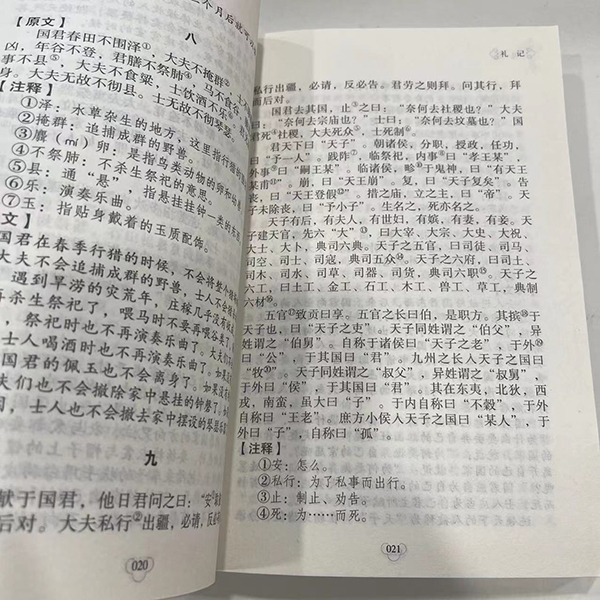 个月后就
八
【原文】
国君春田不围泽①，大夫不掩群②，
凶，年谷不登，君膳不祭肺④，马不食谷，
事不县⑤。大夫不食粱，士饮酒不乐⑥。
身。大夫无故不彻县。士无故不彻琴瑟。
【注释】
①泽：水草杂生的地方，这里指行猎的
②掩群：追捕成群的野兽。
③麛（mí）卵：是指鸟类动物的卵和幼
④不祭肺：不杀生祭祀的意思。
⑤县：通“悬”，指悬挂挂钟一类的东
⑥乐：演奏乐曲。
⑦玉：指贴身戴着的玉质配饰。
文】
国君在春季行猎的时候，不会将整个猎
大夫不会追捕成群的野兽，士人不会
遇到旱涝的灾荒年，庄稼几乎没有
再杀生祭祀了，喂马时不要再用
，祭祀时也不再演奏乐曲了。大夫们不
士人喝酒时也不再演奏乐曲了。如果
国君的佩玉也不会离身了。如果没有
夫们也不会撤除家中悬挂的钟磬了。如
司，士人也不会撤去家中摆设的琴瑟
九
献于国君，他日君问之曰：“安①
后对。大夫私行②出疆，必请，反必
020
礼 记
私行出疆，必请，反必告。君劳之则拜。问其行，拜
而后对。
国君去其国，止③之曰：“奈何去社稷也？”大夫
曰：“奈何去宗庙也？”士曰：“奈何去坟墓也？”国
君死④社稷，大夫死众⑤，士死制⑥。
君天下曰“天子”。朝诸侯，分职，授政，任功，
曰“予一人”。践阼⑦，临祭祀，内事⑧曰“孝王某”，
外事⑨曰“嗣王某”。临诸侯，畛⑩于鬼神，曰“有天王
某甫⑪”。崩，曰“天王崩”。复，曰“天子复矣”。告
丧，曰“天王登假⑫”。措之庙，立之主，曰“帝”。天
子未除丧，曰“予小子”。生名之，死亦名之。
天子有后，有夫人，有世妇，有嫔，有妻，有妾。天
子建天官，先六“大⑬”，曰大宰、大宗、大史、大祝、
大士、大卜，典司六典。天子之五官，曰司徒、司马、
司空、司士、司寇，典司五众⑭。天子之六府，曰司土、
司木、司水、司草、司器、司货，典司六职⑮。天子之
六工，曰土工、金工、石工、木工、兽工、草工，典制
六材⑯。
五官⑰致贡曰享。五官之长曰伯，是职方。其摈⑱于
天子也，曰“天子之吏”。天子同姓谓之“伯父”，异
姓谓之“伯舅”。自称于诸侯曰“天子之老”，于外
曰“公”，于其国曰“君”。九州之长入天子之国曰
“牧⑲”。天子同姓谓之“叔父”，异姓谓之“叔舅”，
于外曰“侯”，于其国曰“君”。其在东夷，北狄，西
戎，南蛮，虽大曰“子”。于内自称曰“不穀”，于外
自称曰“王老”。庶方小侯入天子之国曰“某人”，于
外曰“子”，自称曰“孤”。
【注释】
①安：怎么。
②私行：为了私事而出行。
③止：制止、劝告。
④死：为……而死。
021